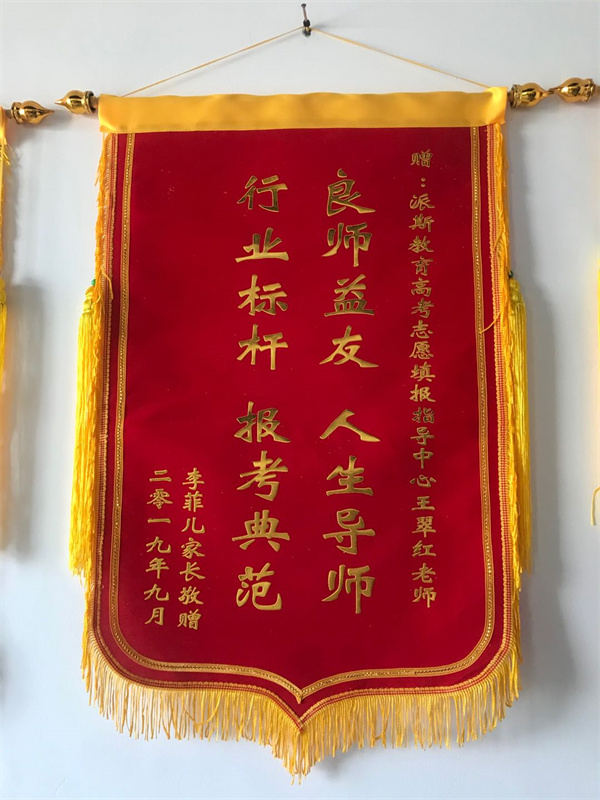 赠：派斯教育高考志愿填报指导中心王翠红老师
良师益友 人生导师
行业标杆 报考典范
李菲儿家长敬赠
二零一九年九月